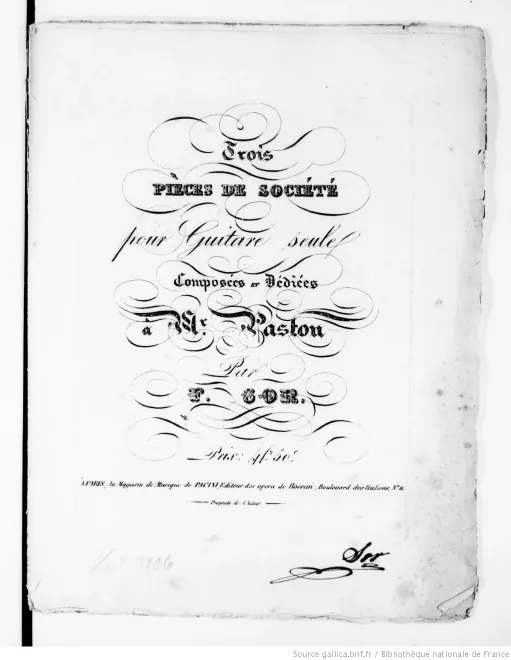 Trois
PIÈCES DE SOCIÉTÉ
pour Guitare seule
Composées et Dédiées
à Mr. Pastou
Par
F. SOR.
Prix: 4f. 50c.
À PARIS, Au Magasin de Musique de PACINI Editeur des opera de Rossini, Boulevard des Italiens, No. 11
Propriété de l'Auteur
Sor
Source gallica.bnf.fr / Bibliothèque nationale de France